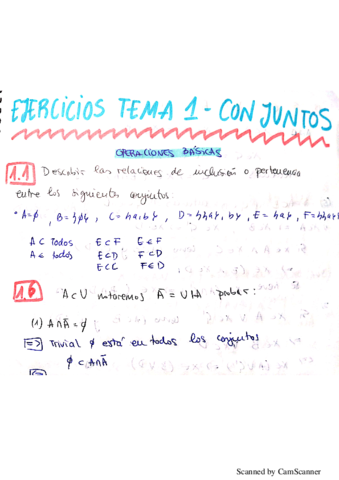 EJERCICIOS TEMA 1 - CONJUNTOS
OPERACIONES BÁSICAS
1.1 Describir las relaciones de inclusión o pertenencia
entre los siguientes conjuntos.
· A=∅, B={∅}, C={a,b}, D={{a}, b}, E={a}, F={{a}
A ⊂ Todos E⊂F E∈F
A ∈ todos E⊂D F⊂D
E⊂C F∈D
1.6 A⊂U notaremos Ā = U\A probar:
(1) A∩Ā = ∅
⇒ Trivial ∅ está en todos los conjuntos
∅ ⊂ A∩Ā
Scanned by CamScanner